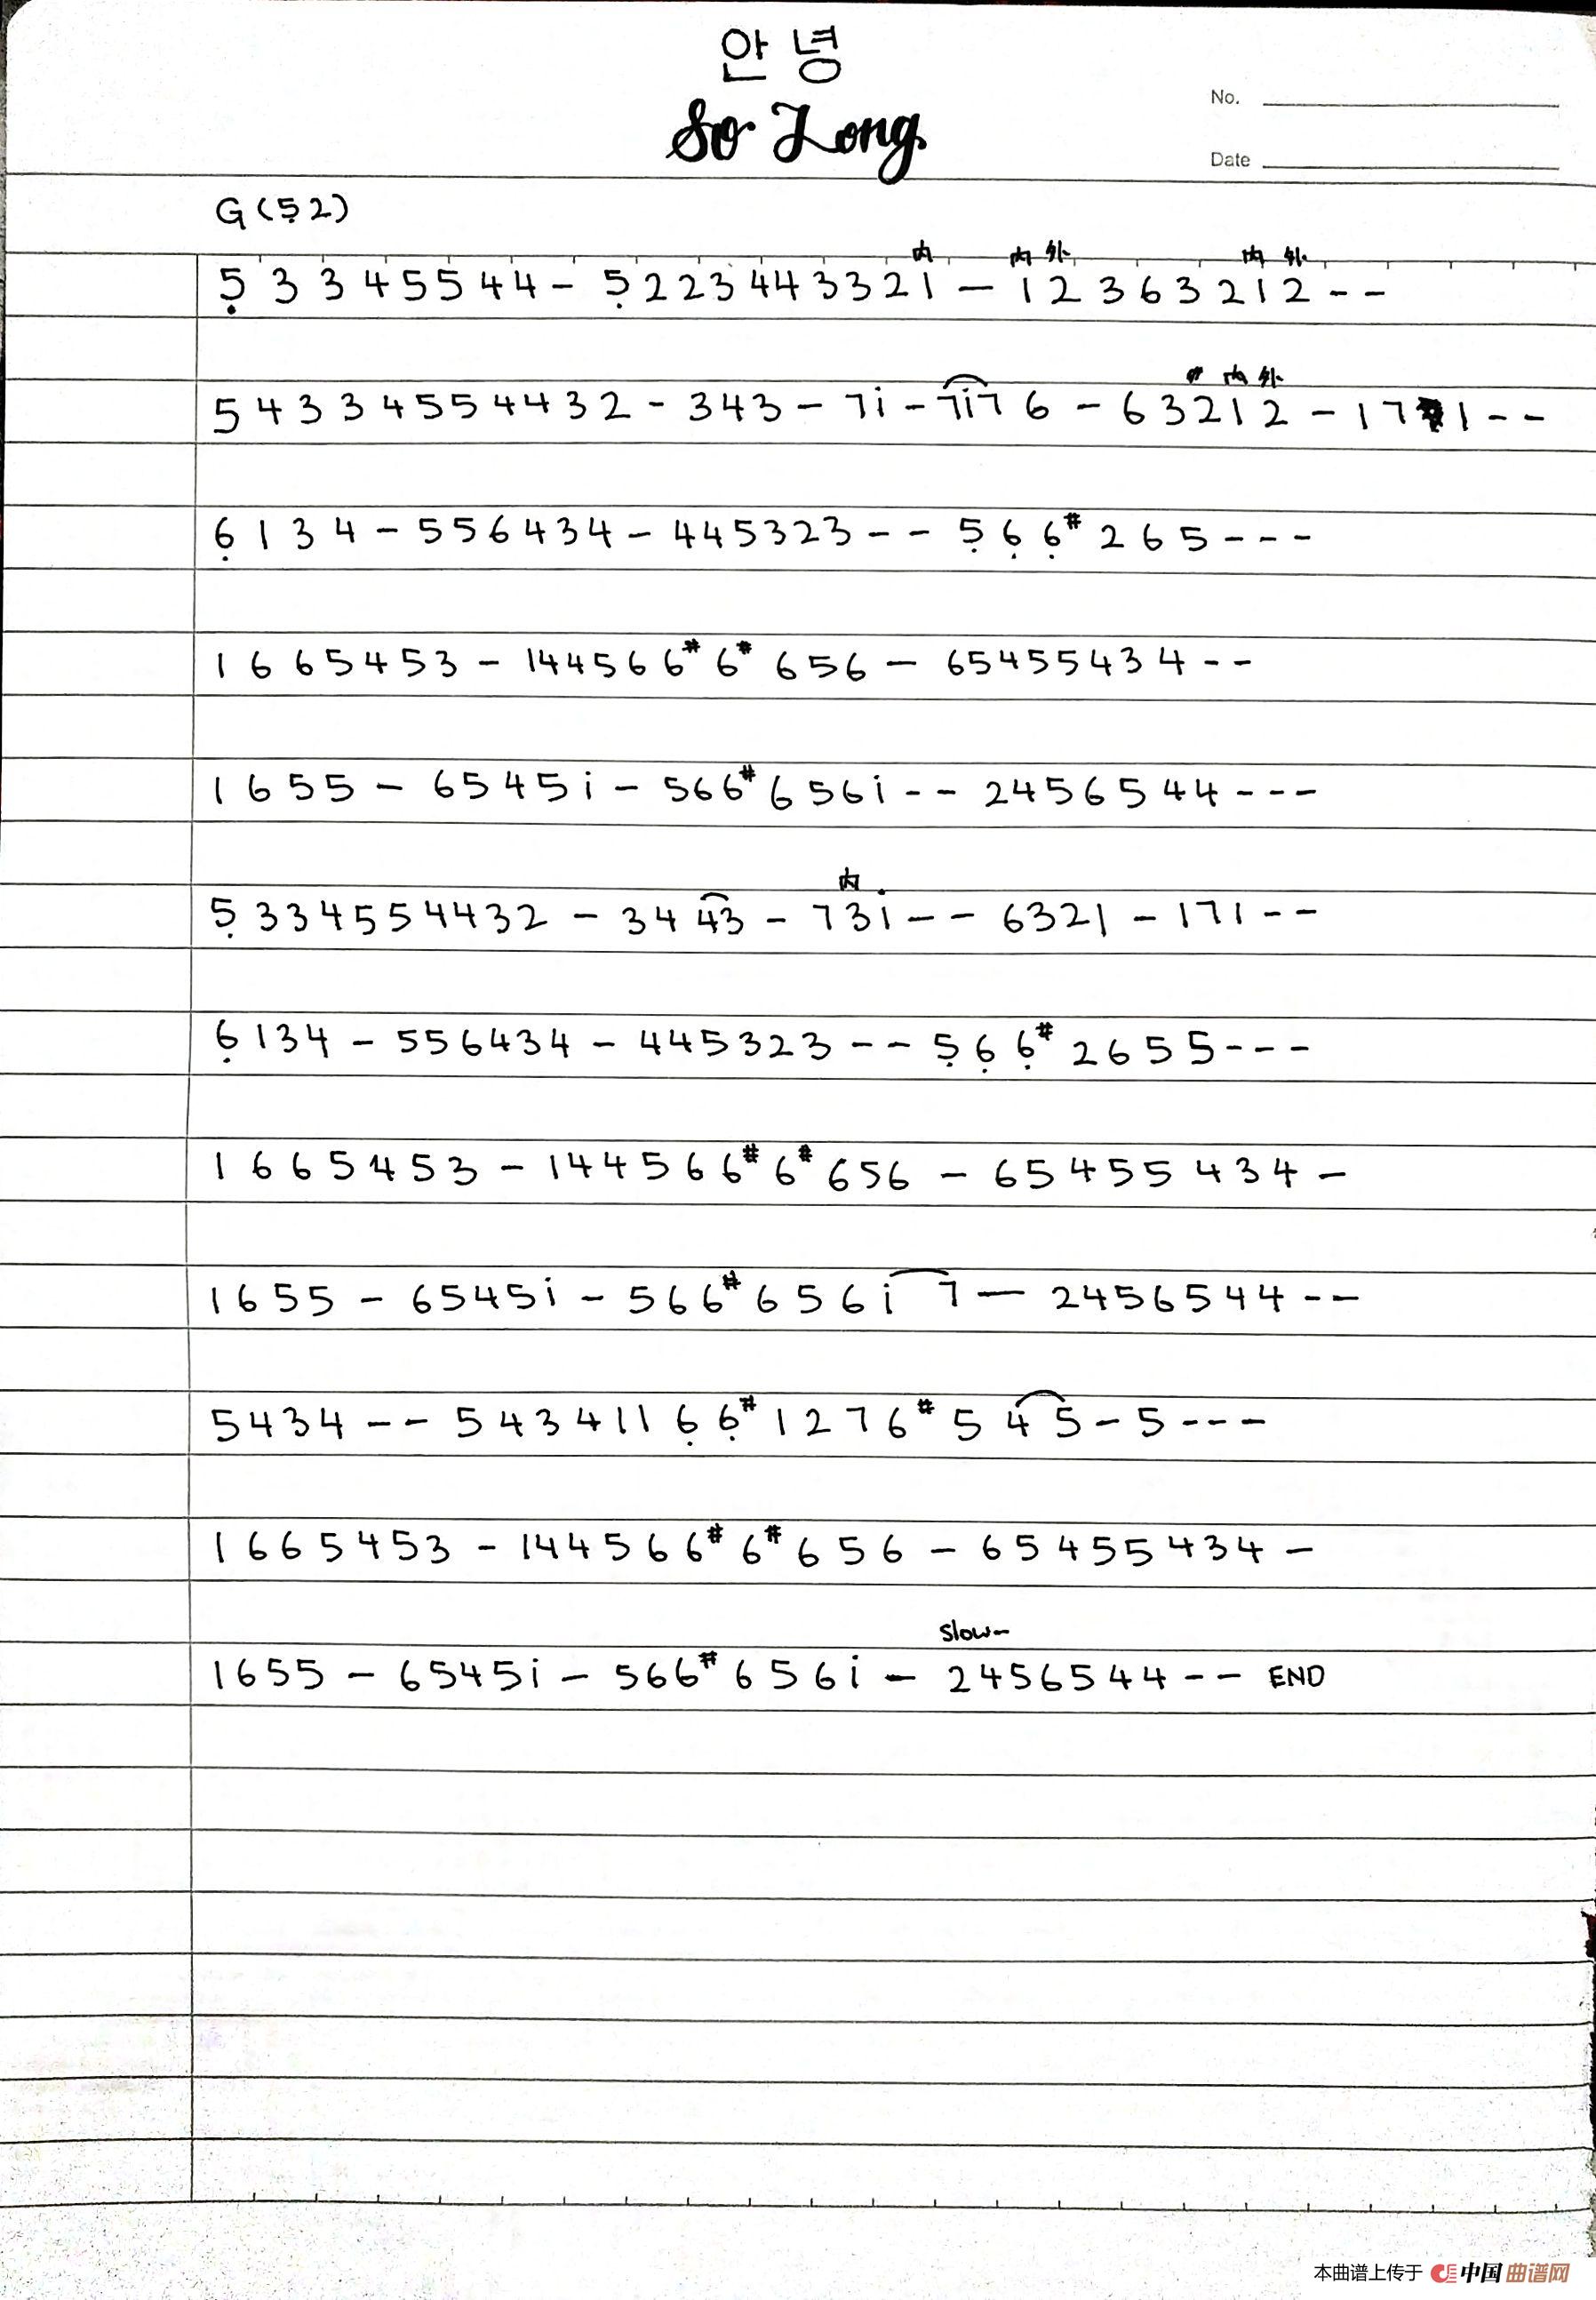 안녕
So Long.
No.
Date
G (5̣ 2)
内 内 外 内 外
5̣ 3 3 4 5 5 4 4 – 5̣ 2 2 3 4 4 3 3 2 1 – 1 2 3 6 3 2 1 2 – –
内 外
5 4 3 3 4 5 5 4 4 3 2 – 3 4 3 – 7 i – 7 i 7 6 – 6 3 2 1 2 – 1 7 1 – –
6̣ 1 3 4 – 5 5 6 4 3 4 – 4 4 5 3 2 3 – – 5̣ 6̣ 6̣# 2 6 5 – – –
1 6 6 5 4 5 3 – 1 4 4 5 6 6# 6# 6 5 6 – 6 5 4 5 5 4 3 4 – –
1 6 5 5 – 6 5 4 5 i – 5 6 6# 6 5 6 i – – 2 4 5 6 5 4 4 – – –
内
5̣ 3 3 4 5 5 4 4 3 2 – 3 4 4 3 – 7 3 i – – 6 3 2 1 – 1 7 1 – –
6̣ 1 3 4 – 5 5 6 4 3 4 – 4 4 5 3 2 3 – – 5̣ 6̣ 6̣# 2 6 5 5 – – –
1 6 6 5 4 5 3 – 1 4 4 5 6 6# 6# 6 5 6 – 6 5 4 5 5 4 3 4 –
1 6 5 5 – 6 5 4 5 i – 5 6 6# 6 5 6 i 7 – 2 4 5 6 5 4 4 – –
5 4 3 4 – – 5 4 3 4 1 1 6̣ 6̣# 1 2 7 6# 5 4 5 – 5 – – –
1 6 6 5 4 5 3 – 1 4 4 5 6 6# 6# 6 5 6 – 6 5 4 5 5 4 3 4 –
slow–
1 6 5 5 – 6 5 4 5 i – 5 6 6# 6 5 6 i – 2 4 5 6 5 4 4 – – END
本曲谱上传于 中国曲谱网